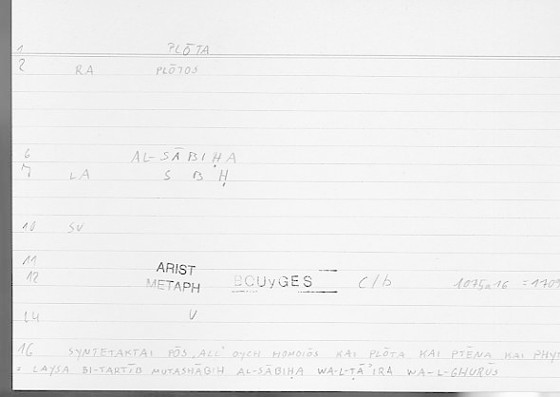 1 PLŌTA
2 RA PLŌTOS
6 AL-SĀBIḤA
7 LA S B Ḥ
10 SV
11
12 ARIST METAPH BOUyGES C/b 1075a16 = 1709
14 V
16 SYNTETAKTAI PŌS, ALL' OYCH HOMOIŌS KAI PLŌTA KAI PTĒNA KAI PHYT
= LAYSA BI-TARTĪB MUTASHĀBIH AL-SĀBIḤA WA-L-ṬĀ'IRA WA-L-GHURŪS